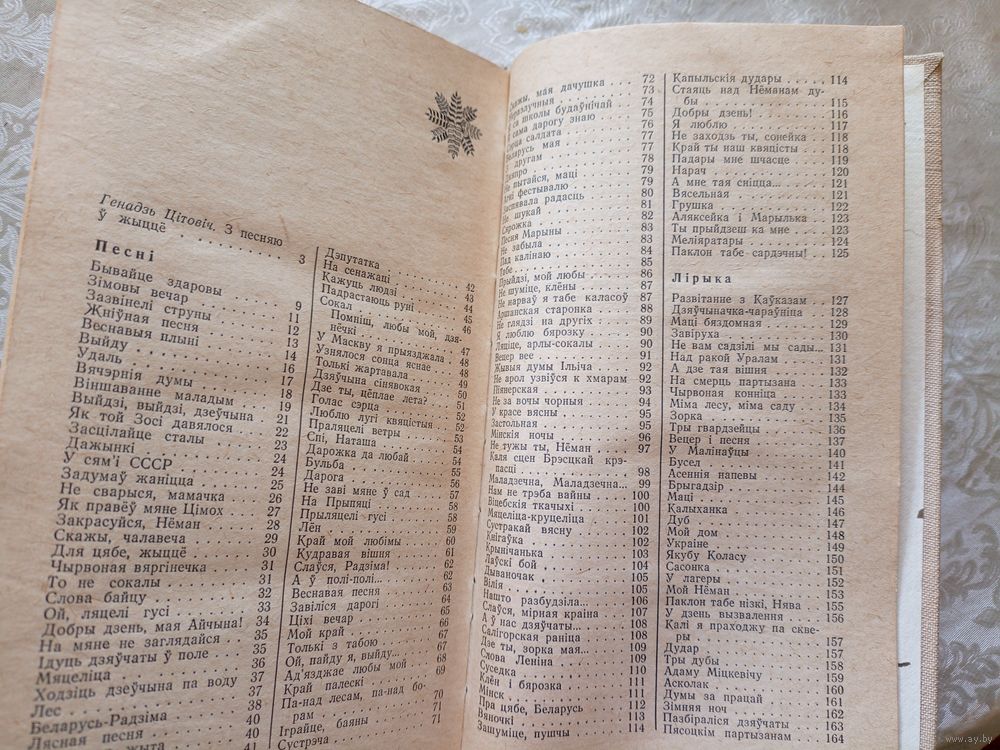 Генадзь Цітовіч. З песняю
ў жыццё . . . . . . 3
Песні
Бывайце здаровы . . . 9
Зімовы вечар . . . 11
Зазвінелі струны . . . 12
Жніўная песня . . . 13
Веснавыя плыні . . . 14
Выйду . . . 16
Удаль . . . 17
Вячэрнія думы . . . 18
Віншаванне маладым . . . 19
Выйдзі, выйдзі, дзеўчына . 21
Як той Зосі давялося . . . 22
Засцілайце сталы . . . 23
Дажынкі . . . 24
У сям'і СССР . . . 24
Задумаў жаніцца . . . 25
Не сварыся, мамачка . . . 26
Як правёў мяне Цімох . . . 27
Закрасуйся, Нёман . . . 28
Скажы, чалавеча . . . 29
Для цябе, жыццё . . . 30
Чырвоная вяргінечка . . . 31
То не сокалы . . . 31
Слова байцу . . . 32
Ой, ляцелі гусі . . . 33
Добры дзень, мая Айчына! 34
На мяне не заглядайся . . 35
Ідуць дзяўчаты ў поле . . 35
Мяцеліца . . . 36
Ходзіць дзеўчына па воду 37
Лес . . . 37
Беларусь-Радзіма . . . 38
Лясная песня . . . 40
жыта . . . 41
Дэпутатка . . . 42
На сенажаці . . . 43
Кажуць людзі . . . 44
Падрастаюць руні . . . 45
Сокал . . . 46
Помніш, любы мой, дзя-
нёчкі . . . 47
У Маскву я прыязджала . 48
Узнялося сонца яснае . . 48
Толькі жартавала . . . 49
Дзяўчына сінявокая . . . 50
Дзе ты, цёплае лета? . . . 51
Голас сэрца . . . 52
Люблю лугі квяцістыя . . 52
Праляцелі ветры . . . 53
Спі, Наташа . . . 54
Дарожка да любай . . . 54
Бульба . . . 55
Дарога . . . 56
Не заві мяне ў сад . . . 57
На Прыпяці . . . 58
Прыляцелі гусі . . . 58
Лён . . . 59
Край мой любімы . . . 60
Кудравая вішня . . . 61
Слаўся, Радзіма! . . . 62
А ў полі-полі... . . . 62
Веснавая песня . . . 63
Завіліся дарогі . . . 64
Ціхі вечар . . . 65
Мой край . . . 66
Толькі з табою . . . 67
Ой, пайду я, выйду... . . 67
Ад'язджае любы мой . . . 68
Край палескі . . . 69
Па-над лесам, па-над бо-
рам . . . 70
Іграйце, баяны . . . 71
Сустрэча . . . 71
мая дачушка . . . 72
Неразлучныя . . . 73
са школы будаўнічай . 74
сама дарогу знаю . . . 75
Сэрца салдата . . . 76
Беларусь мая . . . 77
другам . . . 77
Дняпро . . . 78
Не пытайся, маці . . . 79
Дні фестывалю . . . 79
Заспявала радасць . . . 80
Не шукай . . . 81
Сярожка . . . 82
Песня Марыны . . . 83
Не забыла . . . 83
Пад калінаю . . . 84
Табе . . . 85
Прыйдзі, мой любы . . . 86
Не шуміце, клёны . . . 87
Не нарваў я табе каласоў 87
Аршанская старонка . . . 88
Не глядзі на другіх . . . 89
Я люблю бярозку . . . 90
Ляціце, арлы-сокалы . . . 90
Вецер вее . . . 91
Жывыя думы Ільіча . . . 92
Не арол узвіўся к хмарам 92
Піянерская . . . 93
Не за вочы чорныя . . . 94
У красе вясны . . . 95
Застольная . . . 95
Мінскія ночы . . . 96
Не тужы ты, Нёман . . . 97
Каля сцен Брэсцкай крэ-
пасці . . . 98
Маладзечна, Маладзечна... 99
Нам не трэба вайны . . . 100
Віцебскія ткачыхі . . . 100
Мяцеліца-круцеліца . . . 101
Сустракай вясну . . . 102
Кнігаўка . . . 102
Крынічанька . . . 103
Лаўскі бой . . . 104
Дываночак . . . 105
Вілія . . . 105
Нашто разбудзіла... . . . 106
Слаўся, мірная краіна . . 107
А ў нас дзяўчаты . . . 108
Салігорская раніца . . . 108
Дзе ты, зорка мая... . . . 109
Слова Леніна . . . 109
Суседка . . . 110
Клён і бярозка . . . 111
Мінск . . . 111
Пра цябе, Беларусь . . . 112
Вяночкі . . . 113
Зашуміце, пушчы . . . 114
Капыльскія дудары . . . . 114
Стаяць над Нёманам ду-
бы . . . 115
Добры дзень! . . . 116
Я люблю . . . 117
Не заходзь ты, сонейка . . 118
Край ты наш квяцісты . . 118
Падары мне шчасце . . . 119
Нарач . . . 120
А мне тая сніцца... . . . 121
Вясельная . . . 121
Грушка . . . 122
Аляксейка і Марылька . . 123
Ты прыйдзеш ка мне . . . 123
Меліяратары . . . 124
Паклон табе сардэчны! . . 125
Лірыка
Развітанне з Каўказам . . 127
Дзяўчыначка-чараўніца . . 128
Маці бяздомная . . . 129
Завіруха . . . 130
Не вам садзілі мы сады... 131
Над ракой Уралам . . . 131
А дзе тая вішня . . . 132
На смерць партызана . . . 133
Чырвоная конніца . . . 133
Міма лесу, міма саду . . . 134
Зорка . . . 135
Тры гвардзейцы . . . 136
Вецер і песня . . . 137
У Малінаўцы . . . 140
Бусел . . . 141
Асеннія напевы . . . 142
Брыгадзір . . . 144
Маці . . . 145
Калыханка . . . 146
Дуб . . . 147
Мой дом . . . 148
Украіне . . . 149
Якубу Коласу . . . 150
Сасонка . . . 151
У лагеры . . . 152
Мой Нёман . . . 153
Паклон табе нізкі, Нява . 155
У дзень вызвалення . . . 156
Калі я праходжу па скве-
ры . . . 157
Дудар . . . 157
Тры дубы . . . 158
Адаму Міцкевічу . . . 159
Асколак . . . 160
Думы за працай . . . 161
Зімняя ноч . . . 162
Пазбіраліся дзяўчаты . . 163
Пясоцкім партызанам . . . 164
www.ay.by